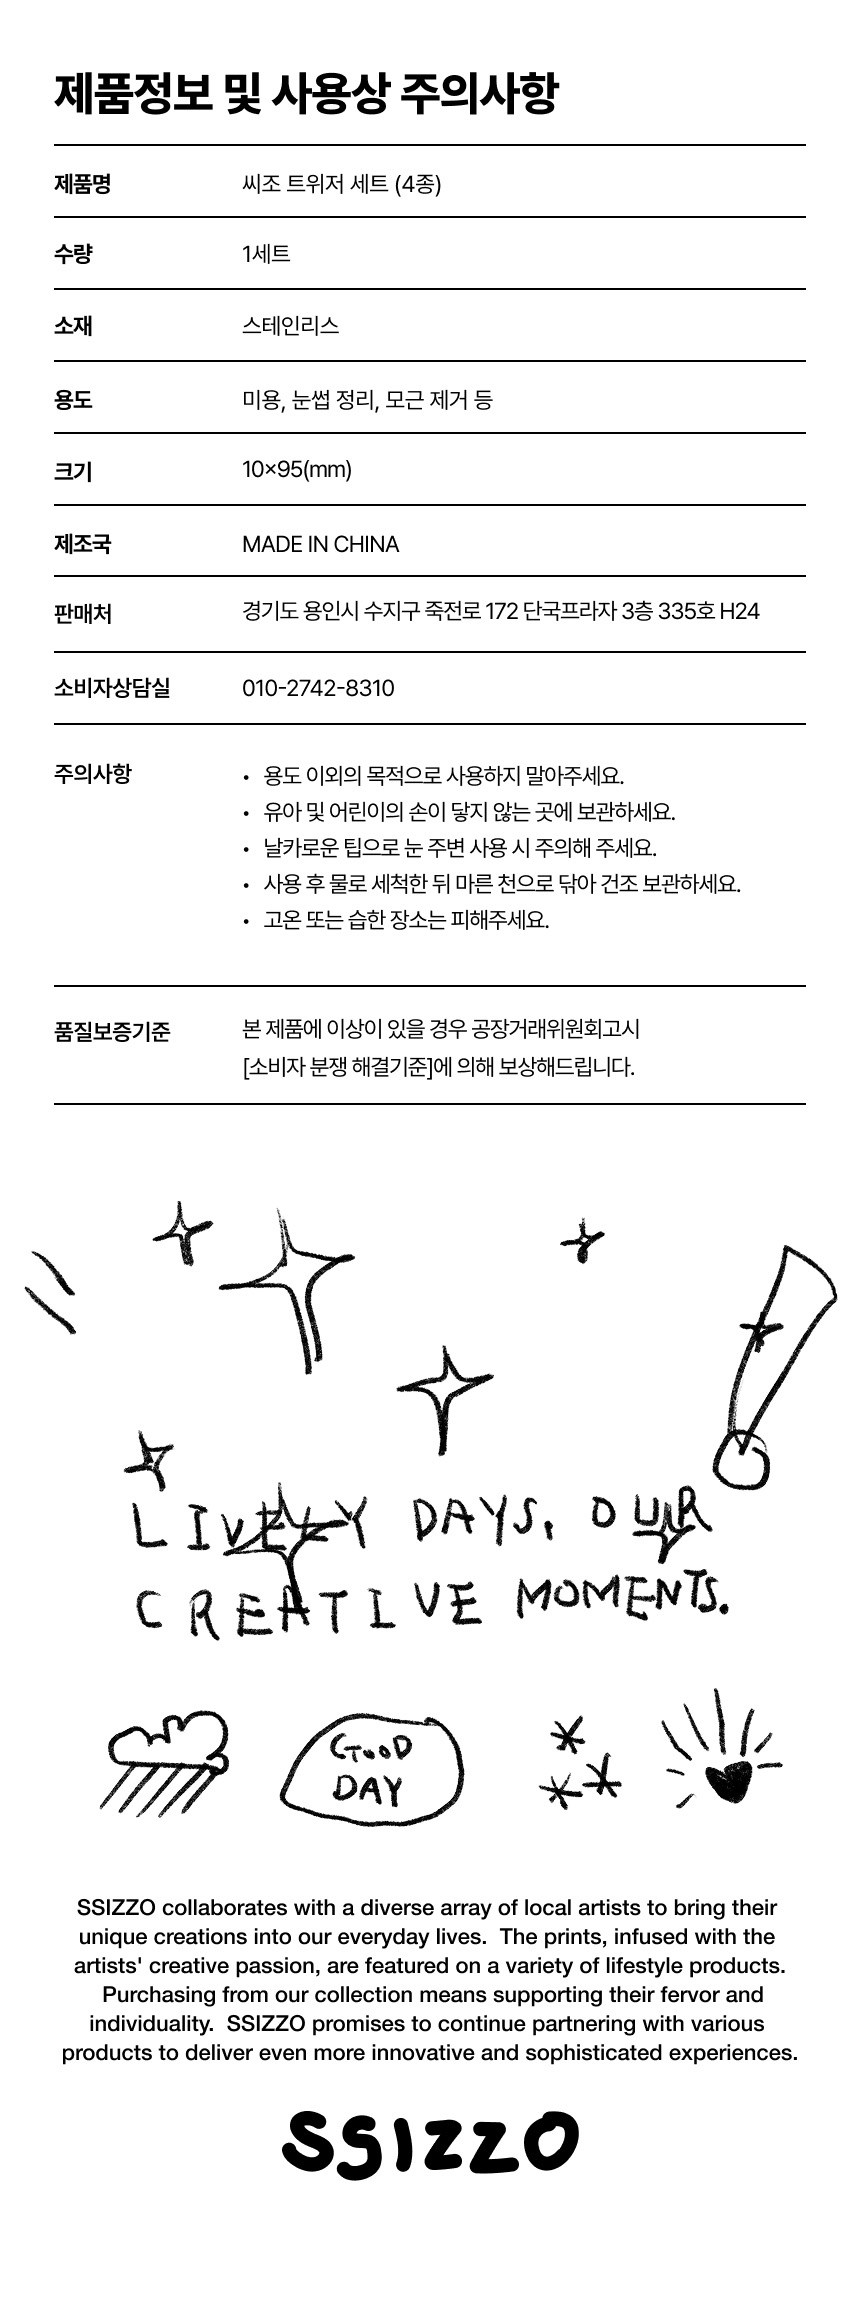 제품정보 및 사용상 주의사항
제품명 씨조 트위저 세트 (4종)
수량 1세트
소재 스테인리스
용도 미용, 눈썹 정리, 모근 제거 등
크기 10×95(mm)
제조국 MADE IN CHINA
판매처 경기도 용인시 수지구 죽전로 172 단국프라자 3층 335호 H24
소비자상담실 010-2742-8310
주의사항 • 용도 이외의 목적으로 사용하지 말아주세요.
• 유아 및 어린이의 손이 닿지 않는 곳에 보관하세요.
• 날카로운 팁으로 눈 주변 사용 시 주의해 주세요.
• 사용 후 물로 세척한 뒤 마른 천으로 닦아 건조 보관하세요.
• 고온 또는 습한 장소는 피해주세요.
품질보증기준 본 제품에 이상이 있을 경우 공장거래위원회고시
[소비자 분쟁 해결기준]에 의해 보상해드립니다.
LIVELY DAYS, OUR
CREATIVE MOMENTS.
GOOD
DAY
SSIZZO collaborates with a diverse array of local artists to bring their
unique creations into our everyday lives. The prints, infused with the
artists' creative passion, are featured on a variety of lifestyle products.
Purchasing from our collection means supporting their fervor and
individuality. SSIZZO promises to continue partnering with various
products to deliver even more innovative and sophisticated experiences.
SSIZZO